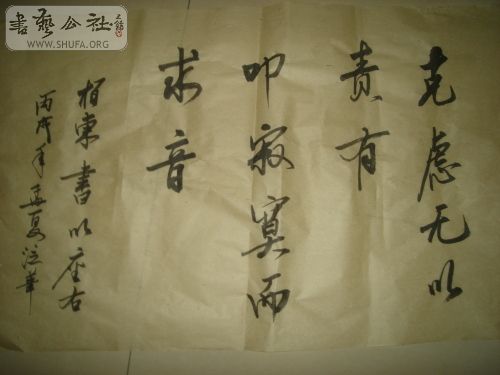 書藝公社
WWW.SHUFA.ORG
克虚无以
责有
叩寂寞而
求音
栢東書以座右
丙戌年夏華